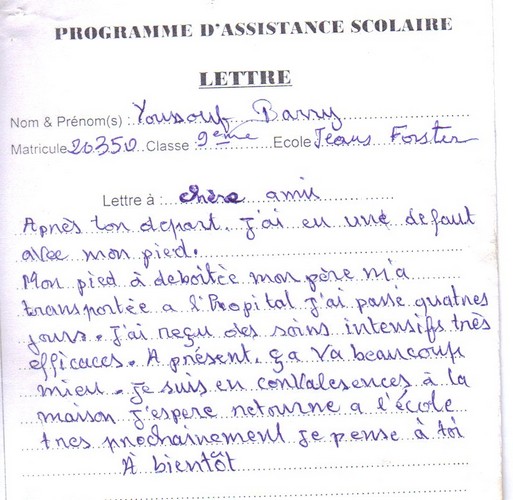 PROGRAMME D'ASSISTANCE SCOLAIRE
LETTRE
Nom & Prénom(s) : Youssouf Barry
Matricule 20350 Classe : 9eme Ecole Jeans Forster
Lettre à : chère amis
Après ton depart. j'ai eu une defaut
avec mon pied.
Mon pied à deboitée mon père m'a
transportée a l'hopital j'ai passé quatres
jours. J'ai reçu des soins intensifs très
efficaces. A présent, ça va beaucoup
mieu. je suis en convalesences à la
maison j'espere retourne a l'école
tres prochainement je pense à toi
À bientôt